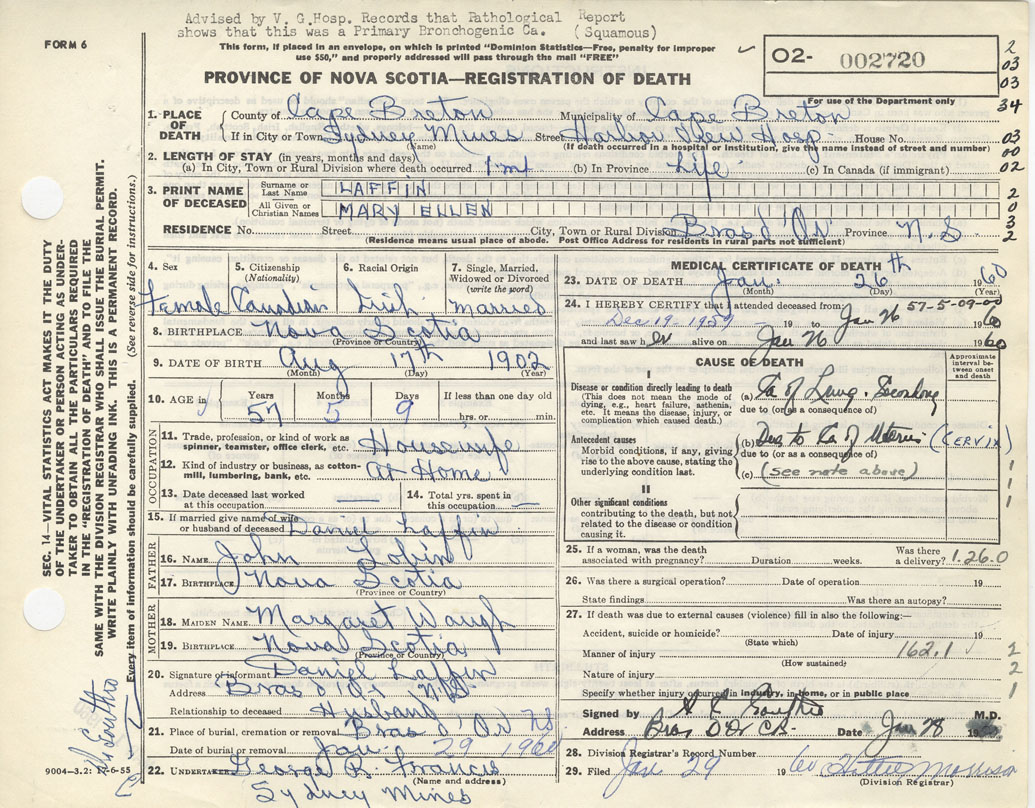 Advised by V. G. Hosp. Records that Pathological Report
shows that this was a Primary Bronchogenic Ca. (Squamous)
FORM 6
This form, if placed in an envelope, on which is printed "Dominion Statistics—Free, penalty for improper
use $50," and properly addressed will pass through the mail "FREE"
PROVINCE OF NOVA SCOTIA—REGISTRATION OF DEATH
O2- 002720
For use of the Department only
2
03
03
34
03
00
02
2
0
3
2
1. PLACE OF DEATH
County of Cape Breton Municipality of Cape Breton
If in City or Town Sydney Mines Street Harbor View Hosp. House No.
(Name) (If death occurred in a hospital or institution, give the name instead of street and number)
2. LENGTH OF STAY (in years, months and days)
(a) In City, Town or Rural Division where death occurred 1 mt (b) In Province Life (c) In Canada (if immigrant)
3. PRINT NAME OF DECEASED
Surname or Last Name LAFFIN
All Given or Christian Names MARY ELLEN
RESIDENCE No. Street City, Town or Rural Division Bras d'Or Province N.S
(Residence means usual place of abode. Post Office Address for residents in rural parts not sufficient)
4. Sex 5. Citizenship (Nationality) 6. Racial Origin 7. Single, Married, Widowed or Divorced (write the word)
Female Canadian Irish Married
8. BIRTHPLACE Nova Scotia
(Province or Country)
9. DATE OF BIRTH Aug 17th 1902
(Month) (Day) (Year)
10. AGE in Years Months Days If less than one day old
57 5 9 hrs. or min.
OCCUPATION
11. Trade, profession, or kind of work as
spinner, teamster, office clerk, etc. Housewife
12. Kind of industry or business, as cotton-
mill, lumbering, bank, etc. At Home
13. Date deceased last worked at this occupation 14. Total yrs. spent in this occupation
15. If married give name of wife
or husband of deceased Daniel Laffin
FATHER
16. NAME John
17. BIRTHPLACE Nova Scotia
(Province or Country)
MOTHER
18. MAIDEN NAME Margaret Waugh
19. BIRTHPLACE Nova Scotia
(Province or Country)
20. Signature of informant Daniel Laffin
Address Bras d'Or N.S.
Relationship to deceased Husband
21. Place of burial, cremation or removal Bras d'Or NS
Date of burial or removal Jan. 29 1960
22. UNDERTAKER George R. Francis
(Name and address)
Sydney Mines
MEDICAL CERTIFICATE OF DEATH
23. DATE OF DEATH Jan. 26th 1960
(Month) (Day) (Year)
24. I HEREBY CERTIFY that I attended deceased from 57-5-09-00
Dec 19 - 1959 19 to Jan 26 1960
and last saw her alive on Jan 26 1960
CAUSE OF DEATH
Approximate interval between onset and death
I
Disease or condition directly leading to death
(This does not mean the mode of dying, e.g., heart failure, asthenia, etc. It means the disease, injury, or complication which caused death.)
(a) Ca of Lung. Secondary
due to (or as a consequence of)
Antecedent causes
Morbid conditions, if any, giving rise to the above cause, stating the underlying condition last.
(b) Due to Ca of Uterus (CERVIX)
due to (or as a consequence of)
(c) (see note above)
1
1
1
II
Other significant conditions
contributing to the death, but not related to the disease or condition causing it.
25. If a woman, was the death associated with pregnancy? Duration weeks. Was there a delivery? 1.26.0
26. Was there a surgical operation? Date of operation 19
State findings Was there an autopsy?
27. If death was due to external causes (violence) fill in also the following:—
Accident, suicide or homicide? Date of injury 19
(State which)
Manner of injury 162.1
(How sustained)
Nature of injury
2
1
Specify whether injury occurred in industry, in home, or in public place
Signed by M.D.
Address Bras D'Or CB. Date Jan 28 19
28. Division Registrar's Record Number
29. Filed Jan 29 1960 Morrison
(Division Registrar)
SEC. 14—VITAL STATISTICS ACT MAKES IT THE DUTY
OF THE UNDERTAKER OR PERSON ACTING AS UNDER-
TAKER TO OBTAIN ALL THE PARTICULARS REQUIRED
IN THE "REGISTRATION OF DEATH" AND TO FILE THE
SAME WITH THE DIVISION REGISTRAR WHO SHALL ISSUE THE BURIAL PERMIT.
WRITE PLAINLY WITH UNFADING INK. THIS IS A PERMANENT RECORD.
Every item of information should be carefully supplied. (See reverse side for instructions.)
9004—3.2: 17-6-55